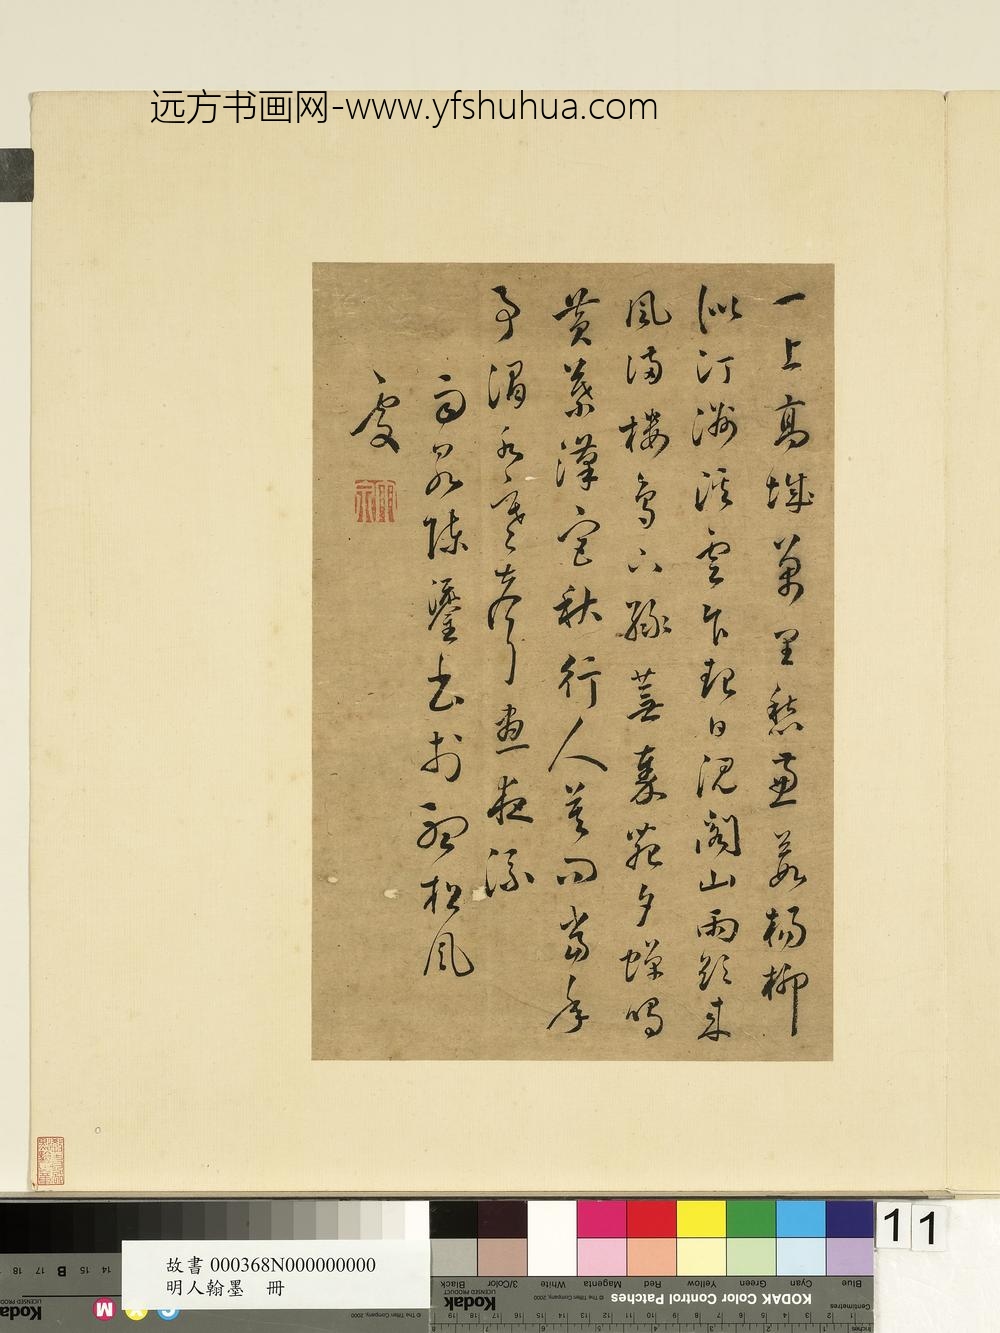 远方书画网-www.yfshuhua.com
一上高城萬里愁蒹葭楊柳
似汀洲溪雲乍起日沉閣山雨欲來
風滿樓鳥下綠蕪秦苑夕蟬鳴
黃葉漢宮秋行人莫問當年
事渭水寒聲晝夜流
雨泉陳鎏書於聽松風
處
故書 000368N000000000
明人翰墨 冊
11
KODAK Color Control Patches
Blue Cyan Green Yellow Red Magenta White 3/Color Black
Kodak
LICENSED PRODUCT
© The Tiffen Company, 2000
Centimetres
Inches